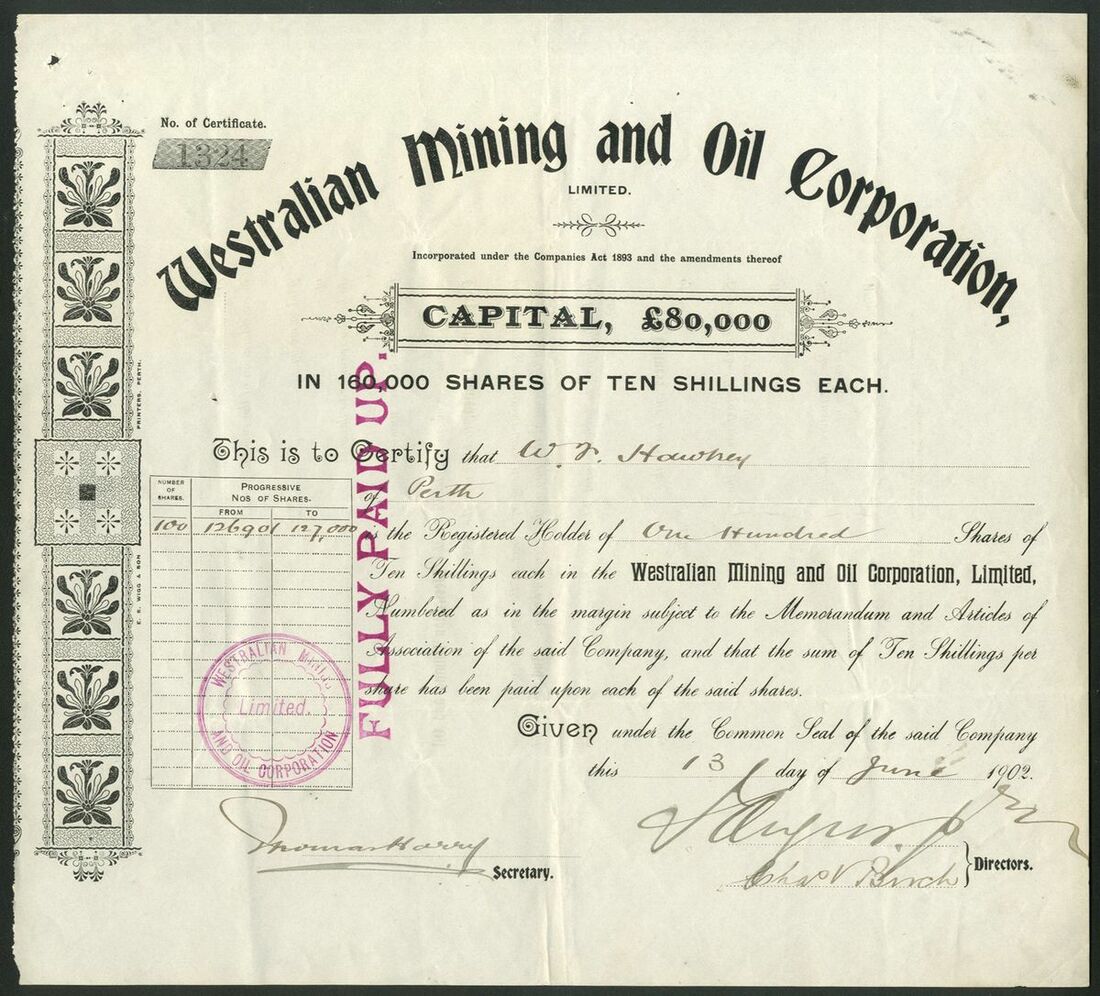 No. of Certificate.
1324
Westralian Mining and Oil Corporation,
LIMITED.
Incorporated under the Companies Act 1893 and the amendments thereof
CAPITAL, £80,000
IN 160,000 SHARES OF TEN SHILLINGS EACH.
FULLY PAID UP.
This is to Certify that W. F. Hawtrey
of Perth
NUMBER OF SHARES.
PROGRESSIVE NOS OF SHARES.
FROM TO
100 126901 127,000
is the Registered Holder of One Hundred Shares of
Ten Shillings each in the Westralian Mining and Oil Corporation, Limited,
Numbered as in the margin subject to the Memorandum and Articles of
Association of the said Company, and that the sum of Ten Shillings per
share has been paid upon each of the said shares.
Given under the Common Seal of the said Company
this 13 day of June 1902.
WESTRALIAN MINING
Limited.
AND OIL CORPORATION
Thomas Harry
Secretary.
Chas V Birch
Directors.
E. S. WIGG & SON
PRINTERS, PERTH.